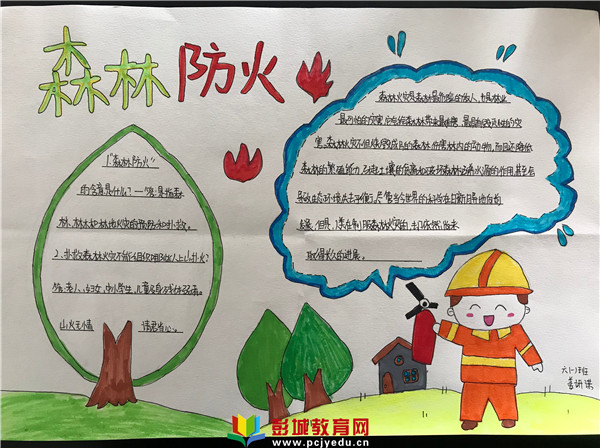 森林防火
1."森林防火"
的含意是什么?一答:是指森
林、林木和林地火灾的预防和扑救。
2、扑救森林火灾不能组织哪些人上山扑火?
答:老人、妇女、中小学生、儿童及身残体弱者。
山火无情 请君当心。
森林火灾是森林最危险的敌人,也是林业
最可怕的灾害,它会给森林带来最
害。森林火灾不但烧毁成片的森林,伤害林内的动物,而且还降低
森林的繁殖能力,引起土壤的贫瘠和破坏森林涵养水源的作用,甚至会
导致生态环境失去平衡,尽管当今世界的科学在日新月异地向前
发展,但是,人类在制服森林火灾上,却依然尚未
取得长久的进展。
六(一)班
彭城教育网
www.pcjyedu.cn